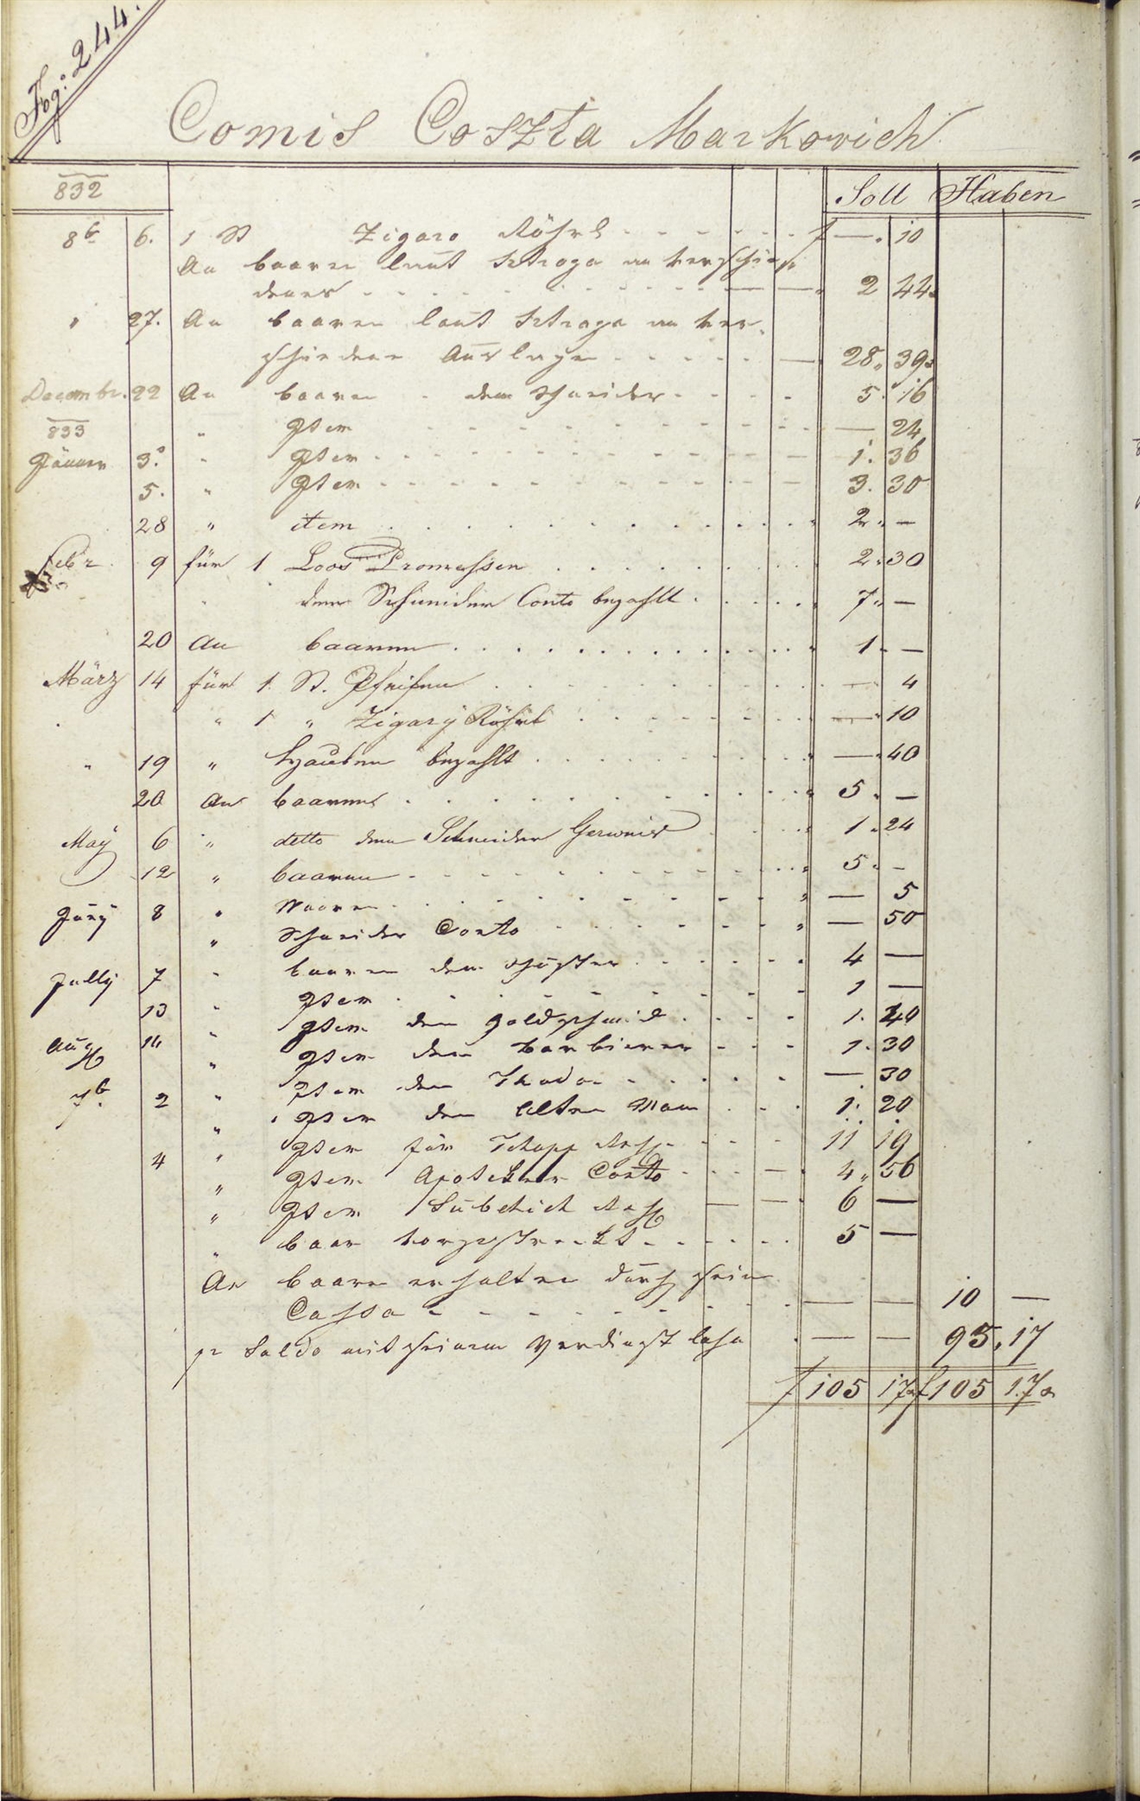 Fog: 244.
Comis Coszta Markovich
832 Soll Haben
8b 6. 1 St Zigaro Röhrl f —. 10
An baaren laut Strazza an verschie-
denes 2 44
" 27. An baaren laut Strazza an ver-
schiedene Auslagen 28. 39
Decembr. 22 An baaren dem Schneider 5. 16
833 " Item — 24
Jänner 3. " Item 1. 36
5. " Item 3. 30
28 " item 2. —
Febr 9 für 1 Loos Promessen 2. 30
dem Schneider Conto bezahlt 7. —
20 An baaren 1. —
März 14 für 1. St. Pfeifen — 4
" 1 " Zigary Röhrl — 10
" 19 " bezahlt — 40
20 An baaren 5. —
May 6 " detto dem Schneider 1. 24
12 " baaren 5. —
Juny 8 " Waaren — 5
" Schneider Conto — 50
Jully 7 " baaren dem Schuster 4 —
13 " Item 1 —
" Item dem Goldschmid 1. 40
Aug 14 " Item dem Barbierer 1. 30
" Item dem — 30
7b. 2 " Item dem alten Mann 1. 20
4 " Item für 11 19
" Item Apoteker Conto 4. 56
" Item 6 —
" baar vorgestreckt 5 —
An baaren erhalten durch seine
Cassa — — 10 —
pr Saldo mit seinem Verdienst — — 95. 17
f 105 17 f 105 17